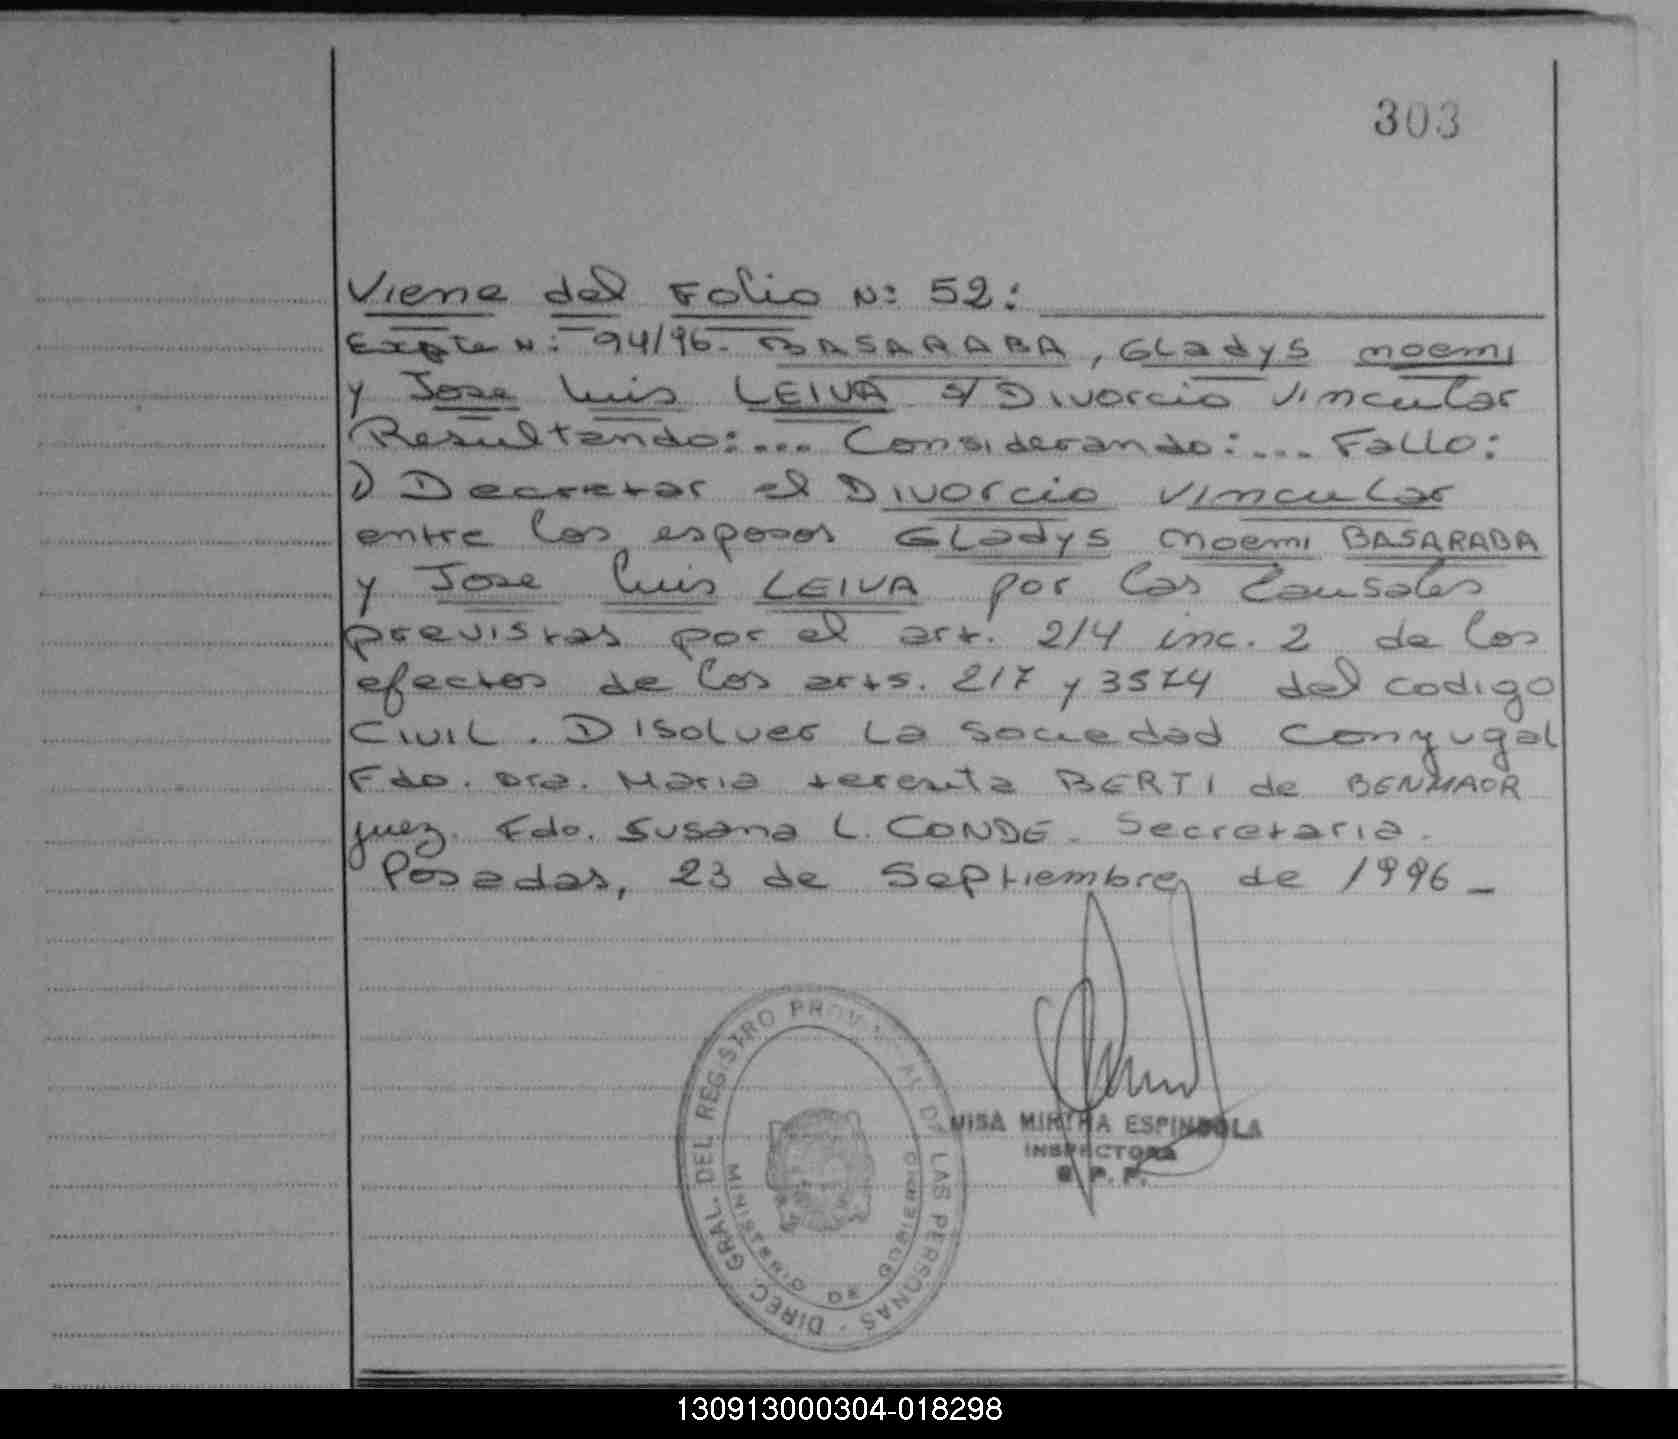 303
Viene del Folio Nº 52:
Expte Nº: 94/96. BASARABA, Gladys Noemi
y Jose Luis LEIVA s/ Divorcio Vincular
Resultando:... Considerando:... Fallo:
1) Decretar el Divorcio Vincular
entre los esposos Gladys Noemi BASARABA
y Jose Luis LEIVA por las Causales
previstas por el art. 214 inc. 2 de los
efectos de los arts. 217 y 3574 del codigo
Civil. Disolver la Sociedad Conyugal
Fdo. Dra. Maria teresita BERTI de BENMAOR
juez. Fdo. Susana L. CONDE. Secretaria.
Posadas, 23 de Septiembre de 1996_
DIREC. GRAL. DEL REGISTRO PROVINCIAL DE LAS PERSONAS
MINISTERIO DE GOBIERNO
UISA MIRTHA ESPINDOLA
INSPECTORA
R. P. P.
130913000304-018298